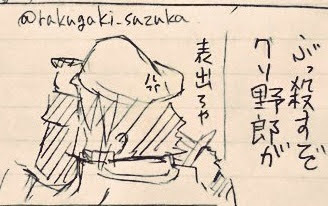 @rakugaki_suzuka
ぶっ殺すぞ
クソ野郎が
表出ろや